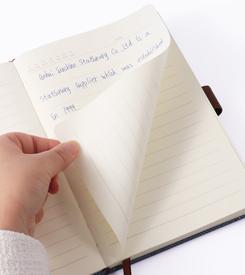 Sunshine Stationery Co., Ltd is a
Stationery Supplier which was established
in 1999.